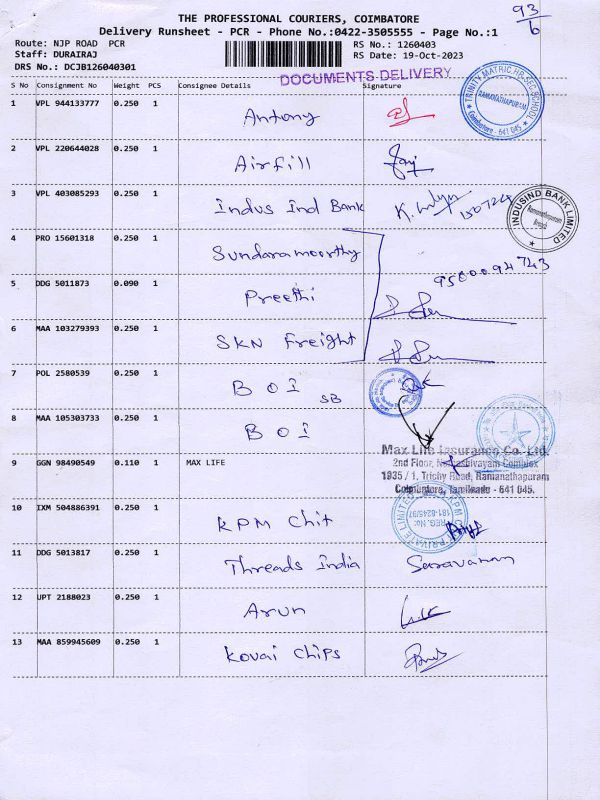 93/6
THE PROFESSIONAL COURIERS, COIMBATORE
Delivery Runsheet - PCR - Phone No.:0422-3505555 - Page No.:1
Route: NJP ROAD PCR RS No.: 1260403
Staff: DURAIRAJ RS Date: 19-Oct-2023
DRS No.: DCJB126040301
DOCUMENTS DELIVERY
S No Consignment No Weight PCS Consignee Details Signature
1 VPL 944133777 0.250 1 Antony
TRINITY MATRIC.HR.SEC.SCHOOL RAMANATHAPURAM Coimbatore - 641 045
2 VPL 220644028 0.250 1 Airfill
3 VPL 403085293 0.250 1 Indus Ind Bank
INDUSIND BANK LIMITED Ramanathapuram Branch
4 PRO 15601318 0.250 1 Sundaramoorthy
5 DDG 5011873 0.090 1 Preethi 9500094743
6 MAA 103279393 0.250 1 SKN Freight
7 POL 2580539 0.250 1 BOI SB
8 MAA 105303733 0.250 1 BOI
Max Life Insurance Co. Ltd.
9 GGN 98490549 0.110 1 MAX LIFE 2nd Floor, Complex
1935 / 1, Trichy Road, Ramanathapuram
Coimbatore, Tamilnadu - 641 045.
10 IXM 504886391 0.250 1 KPM Chit
PRIVATE LIMITED REG. No: 181-8245/97
11 DDG 5013817 0.250 1 Threads India Saravanan
12 UPT 2188023 0.250 1 Arun
13 MAA 859945609 0.250 1 Kovai Chips